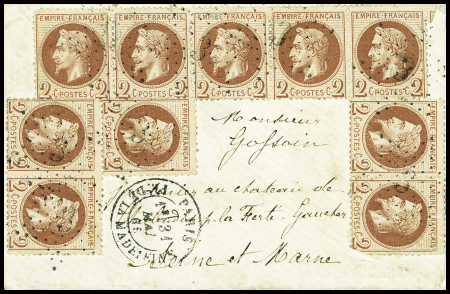 EMPIRE FRANÇAIS EMPIRE FRANÇAIS EMPIRE FRANÇAIS EMPIRE FRANÇAIS EMPIRE FRANÇAIS
2 C. POSTES C. 2 2 C. POSTES C. 2 2 C. POSTES C. 2 2 C. POSTES C. 2 2 C. POSTES C. 2
EMPIRE FRANÇAIS
2 C. POSTES C. 2
EMPIRE FRANÇAIS
2 C. POSTES C. 2
EMPIRE FRANÇAIS
2 C. POSTES C. 2
EMPIRE FRANÇAIS
2 C. POSTES C. 2
EMPIRE FRANÇAIS
2 C. POSTES C. 2
Monsieur
Gossoin
au chateau de
la Ferté-Gaucher
Seine et Marne
PARIS
PL. DE LA MADELEINE
31
MAI